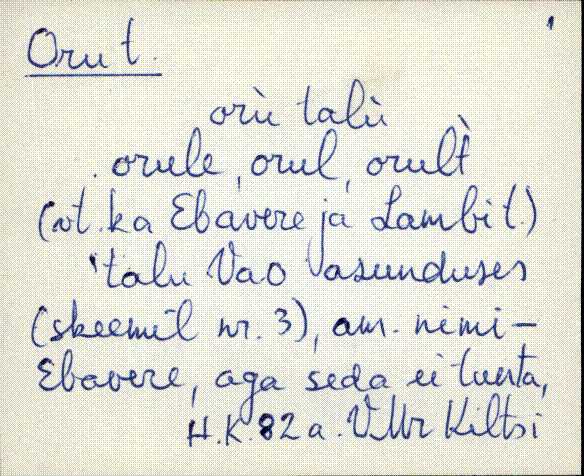 1
Oru t.
orù talù
orule, orul, orult̀
(vt. ka Ebavere ja Lambi t.)
'talu Vao asunduses
(skeemil nr. 3), am. nimi –
Ebavere, aga seda ei tunta,
H.K. 82 a. VMr Kiltsi